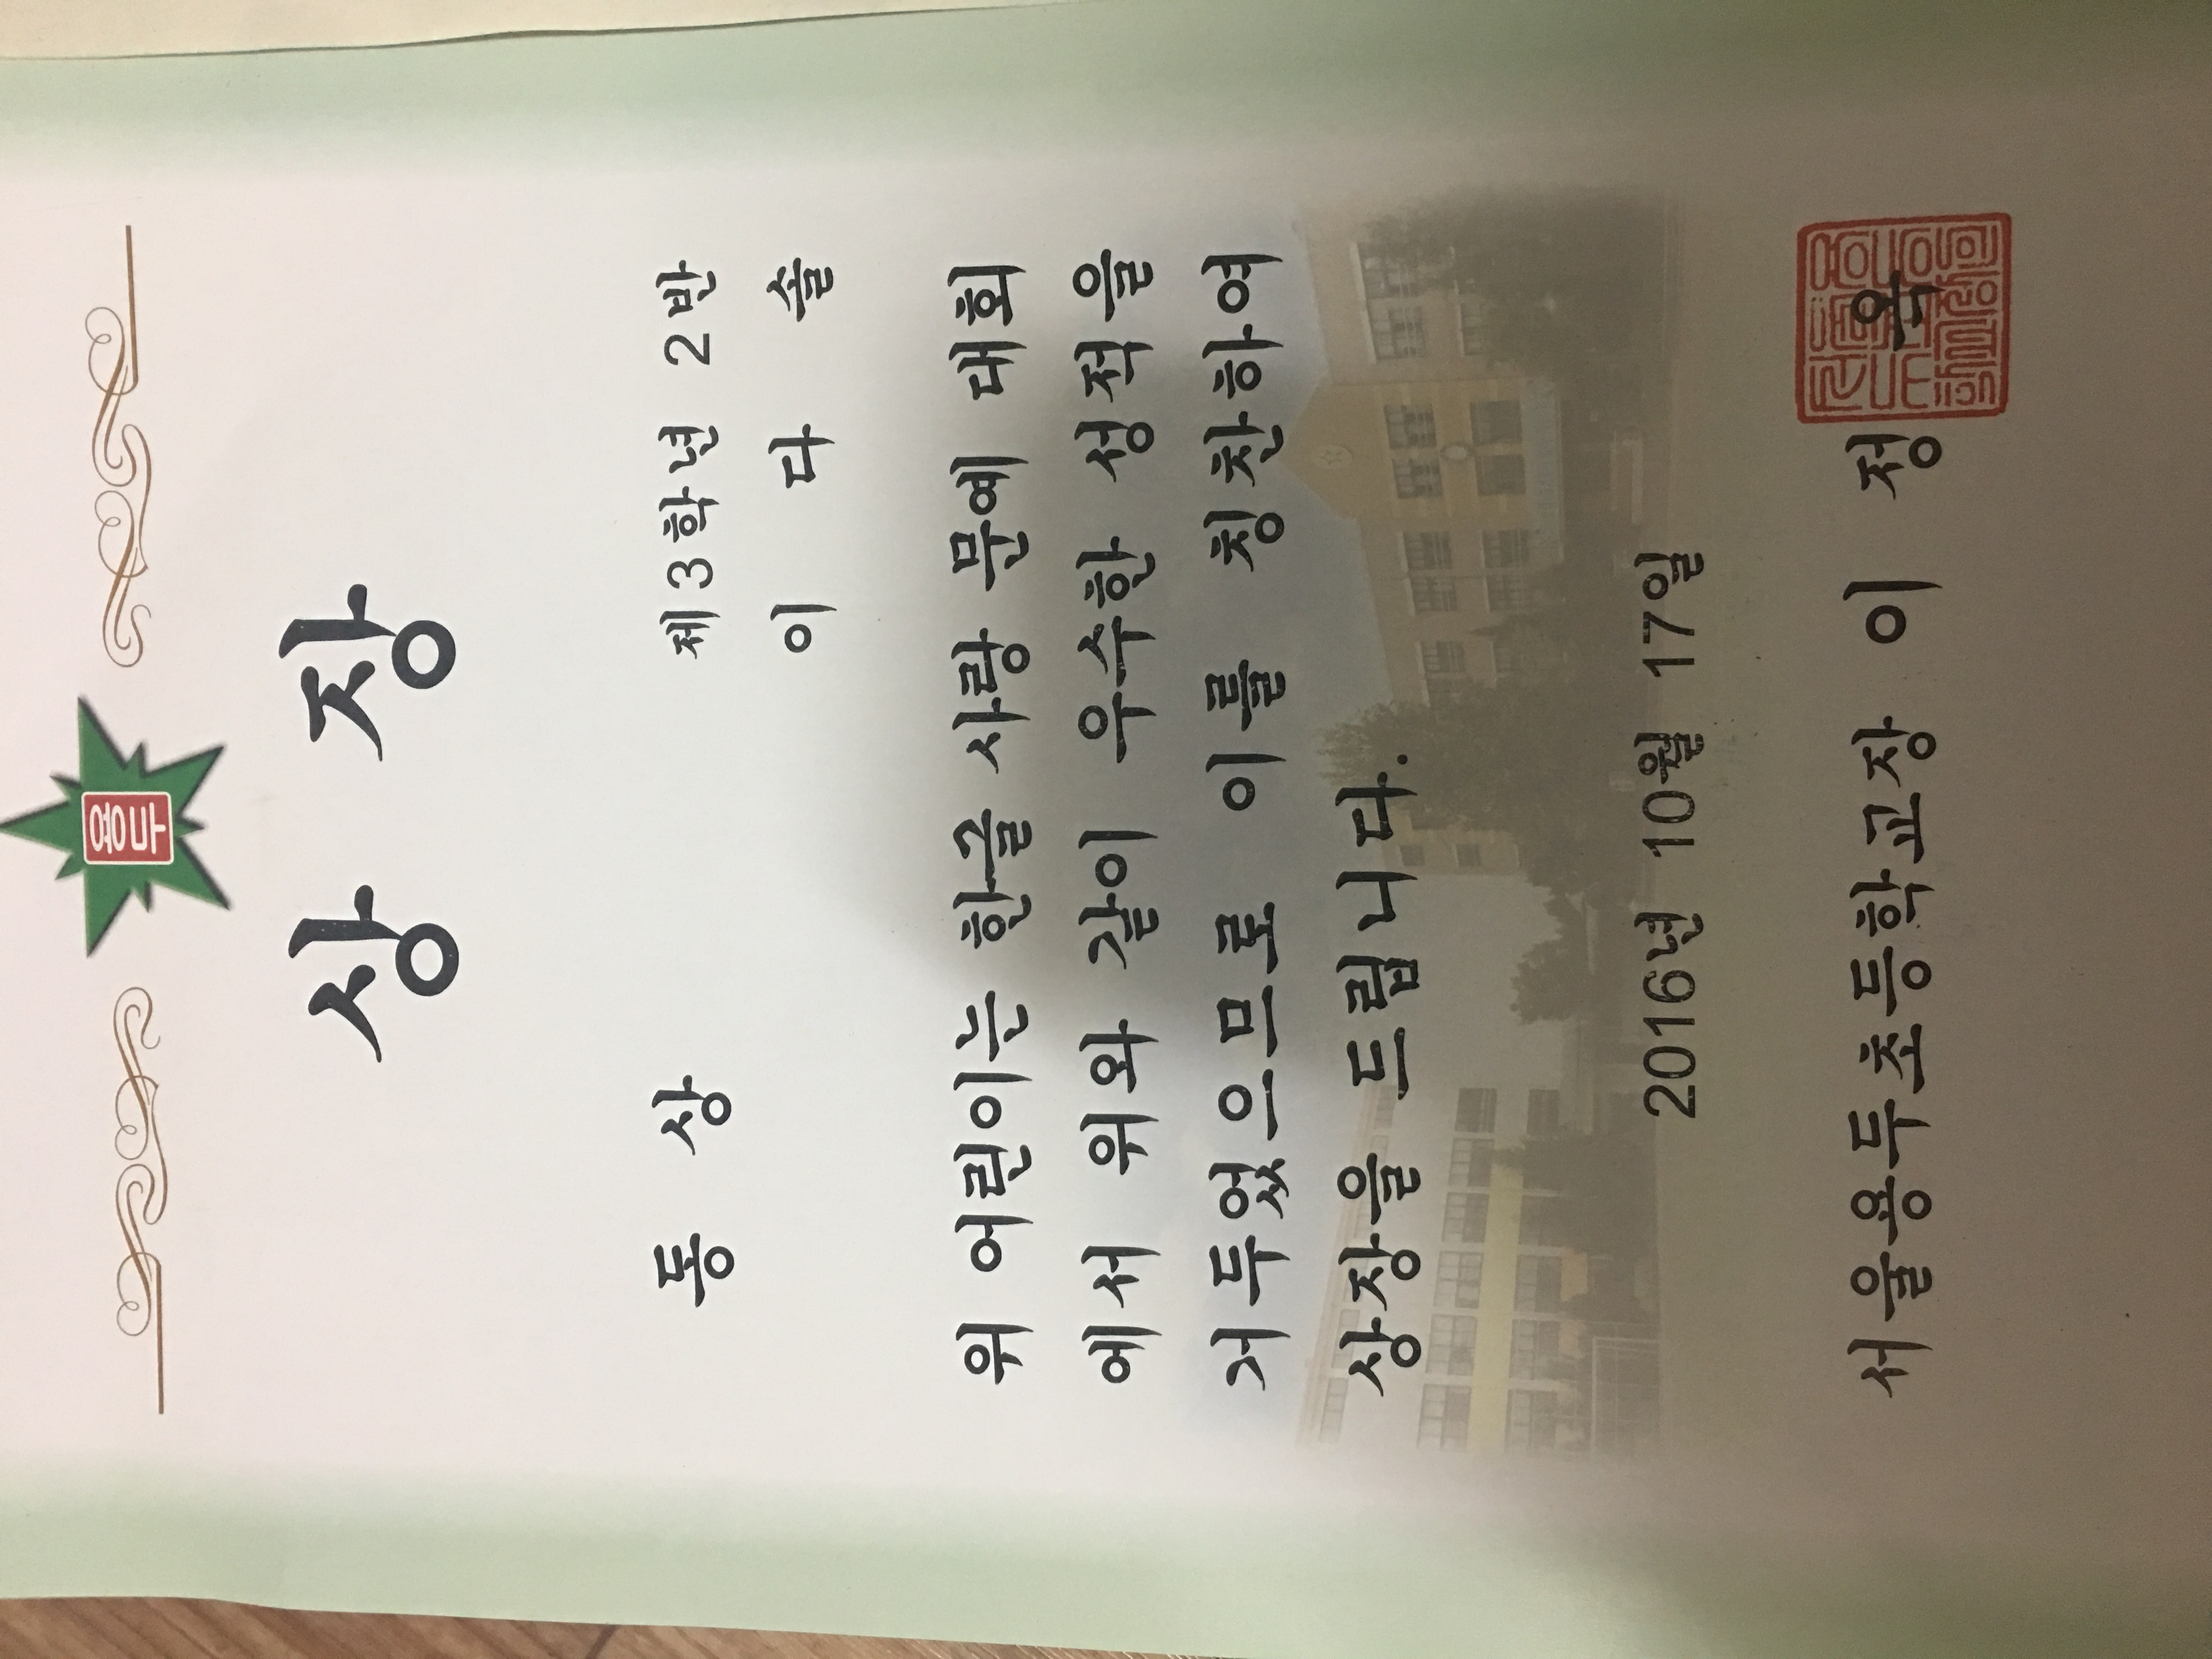 용두
상 장
동 상 제3학년 2반
이 다 솔
위 어린이는 한글 사랑 문예 대회
에서 위와 같이 우수한 성적을
거두었으므로 이를 칭찬하여
상장을 드립니다.
2016년 10월 17일
서울용두초등학교장 이 정 옥